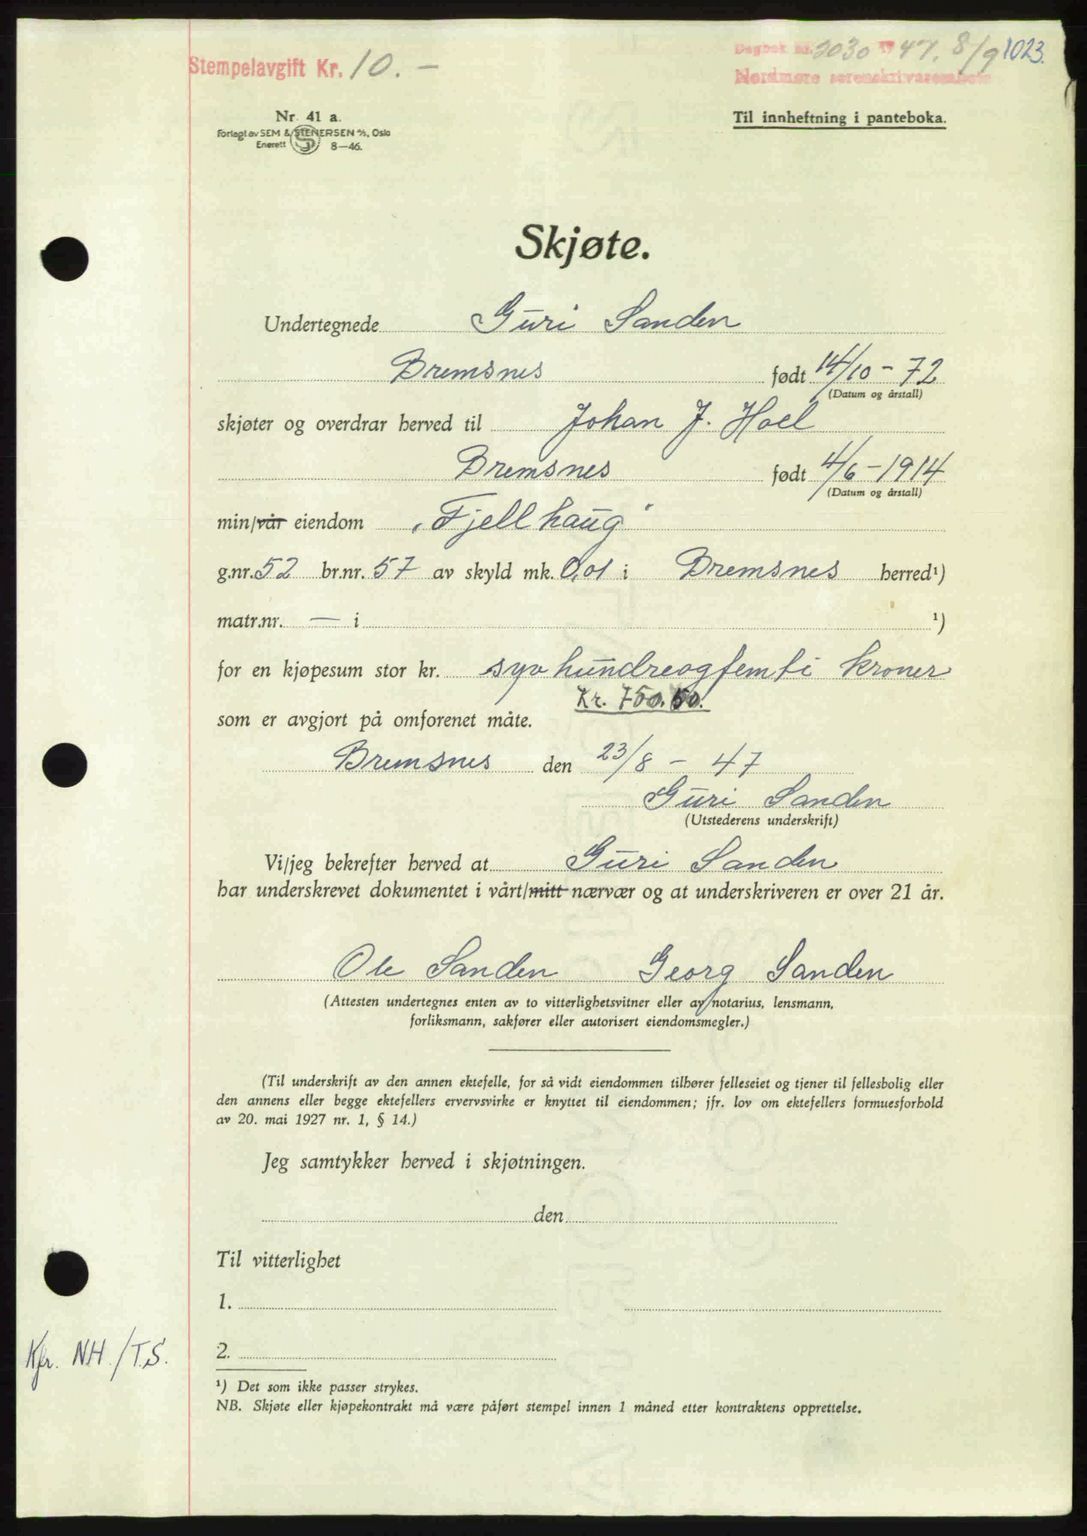 Stempelavgift Kr. 10.-
Dagbok nr. 2030 1947. 8/9 1023.
Nordmøre sorenskriverembete
Nr. 41 a.
Forlagt av SEM & STENERSEN A/S, Oslo
Enerett 8—46.
Til innheftning i panteboka.
Skjøte.
Undertegnede Guri Sanden
Bremsnes født 14/10 - 72
(Datum og årstall)
skjøter og overdrar herved til Johan J. Hoel
Bremsnes født 4/6 - 1914
(Datum og årstall)
min/vår eiendom "Fjellhaug"
g.nr. 52 br.nr. 57 av skyld mk. 0,01 i Bremsnes herred¹)
matr.nr. — i ¹)
for en kjøpesum stor kr. syv hundreogfemti kroner
Kr. 750.
som er avgjort på omforenet måte.
Bremsnes den 23/8 - 47
Guri Sanden
(Utstederens underskrift)
Vi/jeg bekrefter herved at Guri Sanden
har underskrevet dokumentet i vårt/mitt nærvær og at underskriveren er over 21 år.
Ole Sanden Georg Sanden
(Attesten undertegnes enten av to vitterlighetsvitner eller av notarius, lensmann,
forliksmann, sakfører eller autorisert eiendomsmegler.)
(Til underskrift av den annen ektefelle, for så vidt eiendommen tilhører felleseiet og tjener til fellesbolig eller
den annens eller begge ektefellers ervervsvirke er knyttet til eiendommen; jfr. lov om ektefellers formuesforhold
av 20. mai 1927 nr. 1, § 14.)
Jeg samtykker herved i skjøtningen.
den
Til vitterlighet
1.
2.
Kfr. NH./T.S.
¹) Det som ikke passer strykes.
NB. Skjøte eller kjøpekontrakt må være påført stempel innen 1 måned etter kontraktens opprettelse.